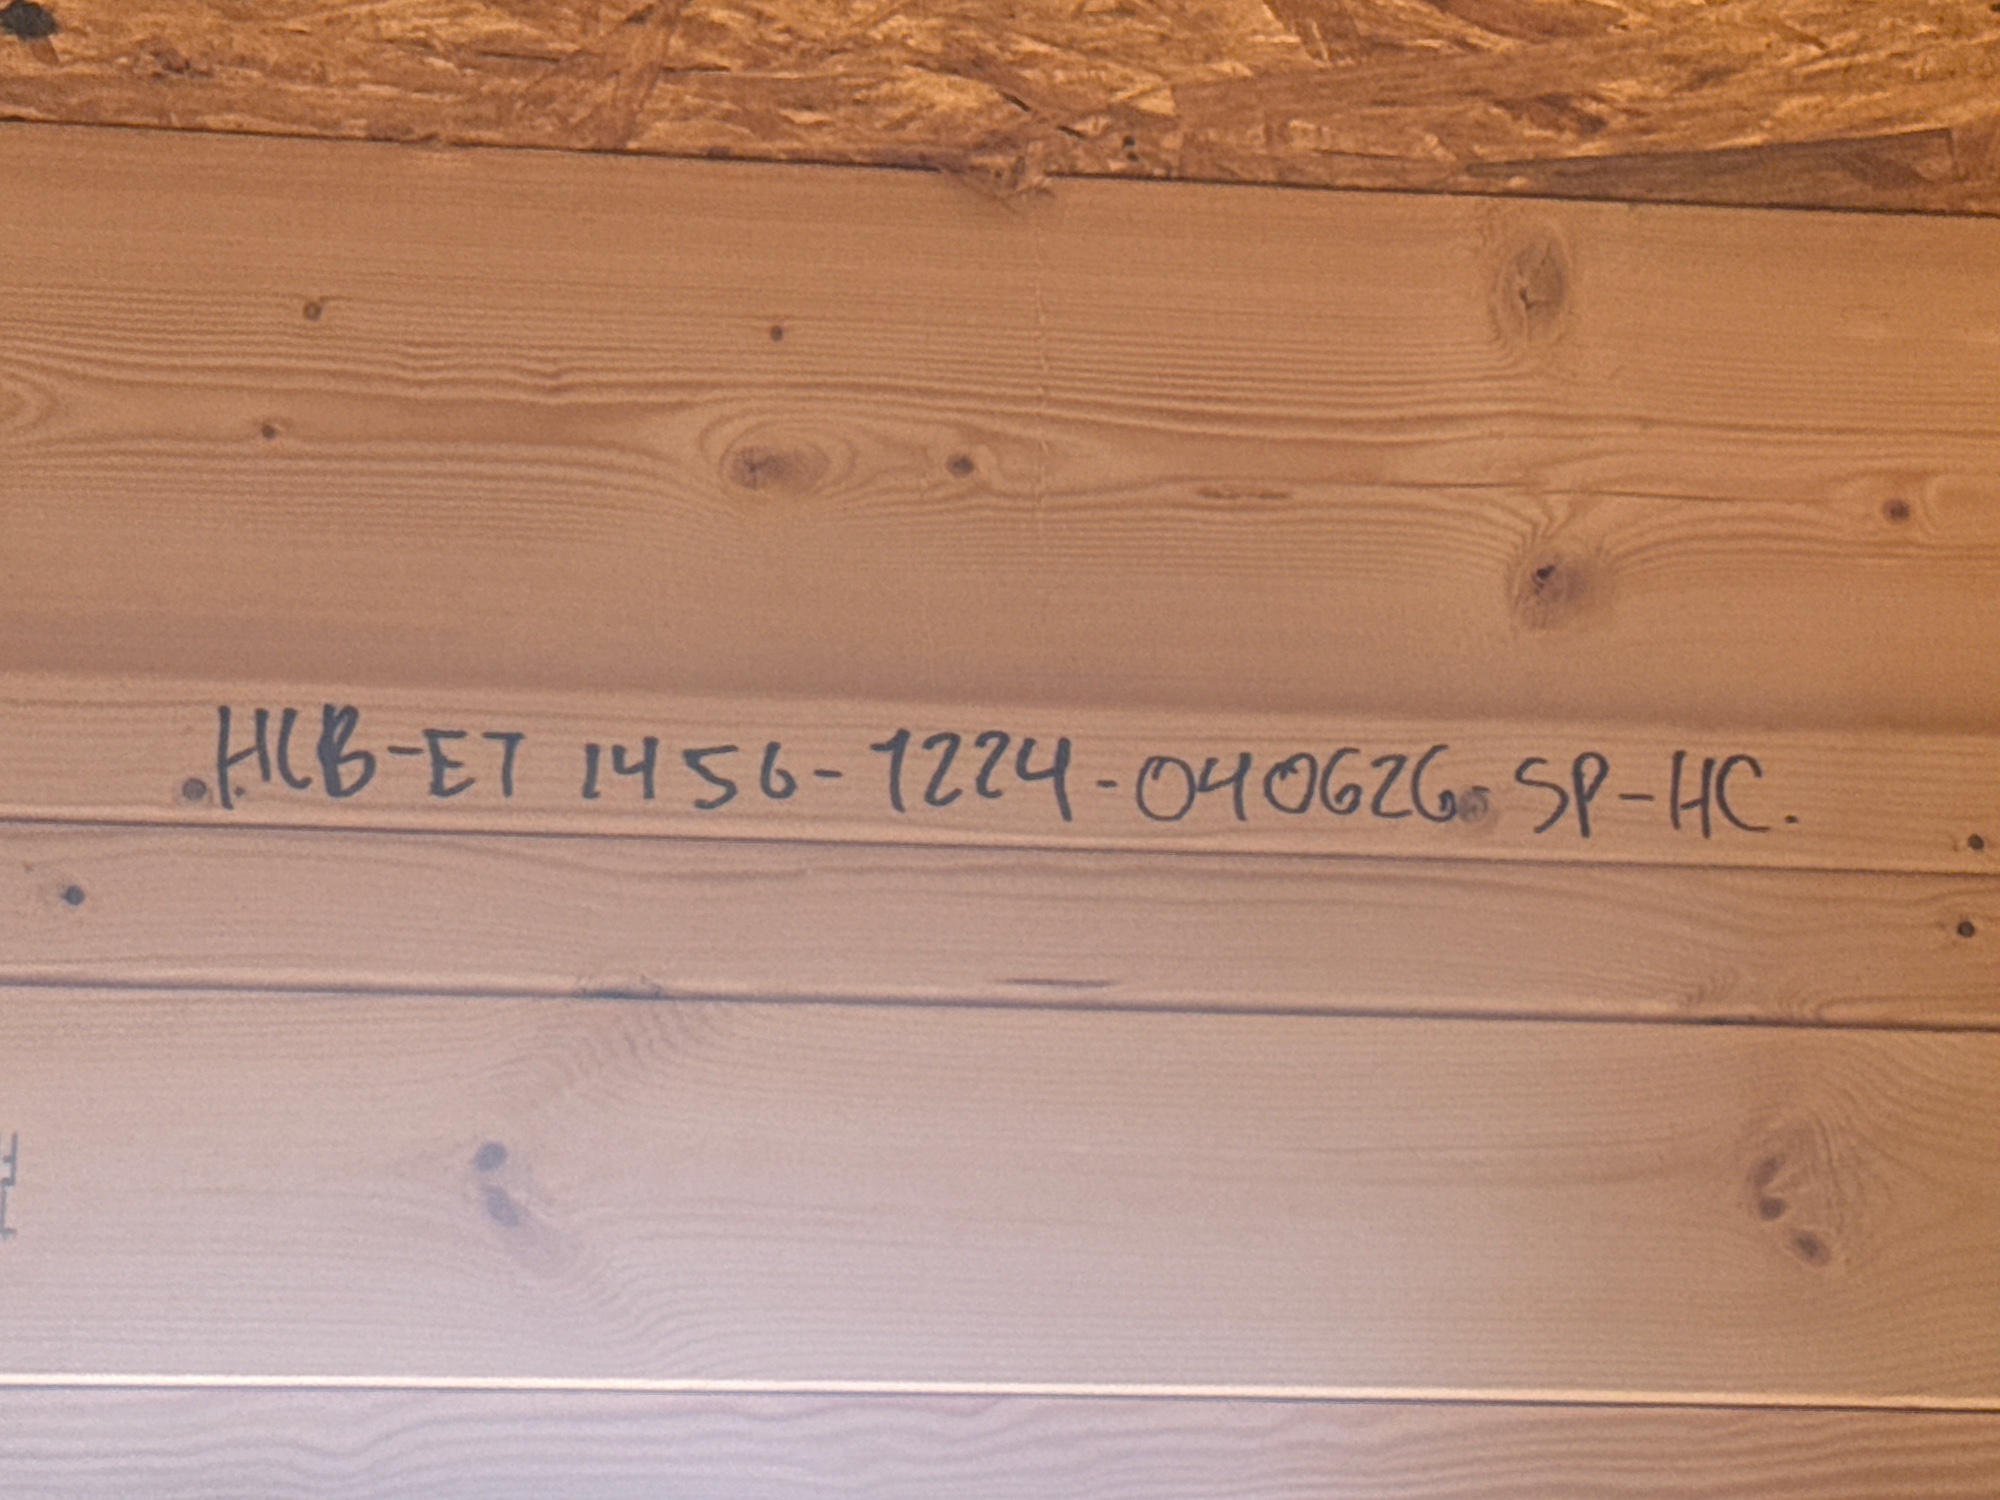 HCB-ET 1456-1224-040626-SP-HC.